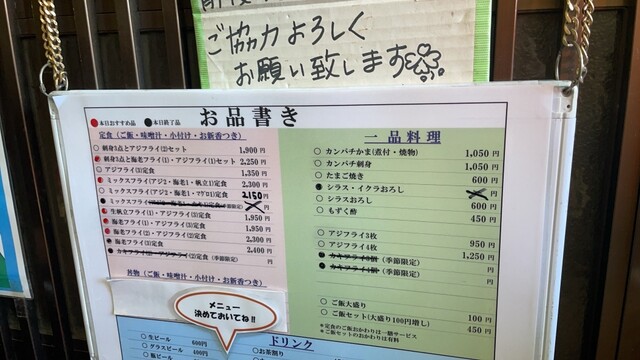 ご協力よろしく
お願い致します
●本日おすすめ品 ●本日終了品
お品書き
定食（ご飯・味噌汁・小付け・お新香つき）
○ 刺身3点とアジフライ(2)セット 1,900円
刺身3点と海老フライ(1)・アジフライ(1)セット 2,250円
○ アジフライ(3)定食 1,350円
ミックスフライ(アジ2・海老1・帆立1)定食 2,300円
○ ミックスフライ(アジ2・海老1・マグロ1)定食 2150円
● ミックスフライ 定食(季節限定) 円
生帆立フライ(1)・アジフライ(3)定食 1,950円
海老フライ(1)・アジフライ(2)定食 1,950円
海老フライ(2)・アジフライ(2)定食 2,300円
海老フライ(3)定食 2,400円
● カキフライ(2)・アジフライ(2)定食(季節限定) 円
丼物（ご飯・味噌汁・小付け・お新香つき）
メニュー
決めておいてね!!
一品料理
○ カンパチかま(煮付・焼物) 1,050円
○ カンパチ刺身 1,050円
○ たまご焼き 600円
● シラス・イクラおろし 円
○ シラスおろし 600円
○ もずく酢 450円
○ アジフライ3枚 950円
○ アジフライ4枚 1,250円
● カキフライ 個(季節限定) 円
● カキフライ 個(季節限定) 円
○ ご飯大盛り 100円
○ ご飯セット(大盛り100円増し) 450円
＊定食のご飯おかわりは一膳サービス
＊おかわりは有料
ドリンク
○ 生ビール 600円
○ グラスビール 400円
○ 瓶ビール
○ お茶割り